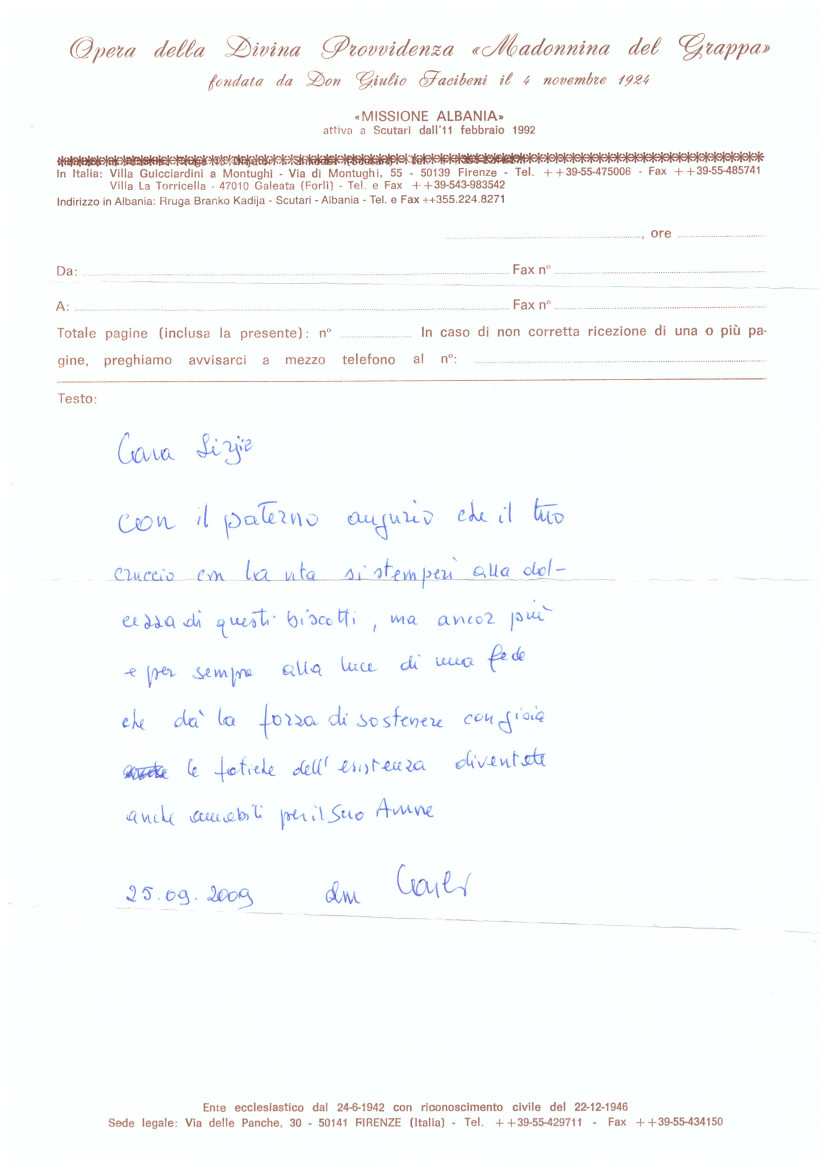 Opera della Divina Provvidenza «Madonnina del Grappa»
fondata da Don Giulio Facibeni il 4 novembre 1924
«MISSIONE ALBANIA»
attiva a Scutari dall'11 febbraio 1992
In Italia: Villa Guicciardini a Montughi - Via di Montughi, 55 - 50139 Firenze - Tel. ++39-55-475006 - Fax ++39-55-485741
Villa La Torricella - 47010 Galeata (Forlì) - Tel. e Fax ++39-543-983542
Indirizzo in Albania: Rruga Branko Kadija - Scutari - Albania - Tel. e Fax ++355.224.8271
, ore
Da: Fax n°
A: Fax n°
Totale pagine (inclusa la presente): n° In caso di non corretta ricezione di una o più pa-
gine, preghiamo avvisarci a mezzo telefono al n°:
Testo:
Cara
con il paterno augurio che il tuo
cruccio con la vita si stemperi alla dol-
cezza di questi biscotti, ma ancor più
e per sempre alla luce di una fede
che dà la forza di sostenere con gioia
le fatiche dell'esistenza diventate
anche amabili per il Suo Amore
25.09.2009 don
Ente ecclesiastico dal 24-6-1942 con riconoscimento civile del 22-12-1946
Sede legale: Via delle Panche, 30 - 50141 FIRENZE (Italia) - Tel. ++39-55-429711 - Fax ++39-55-434150